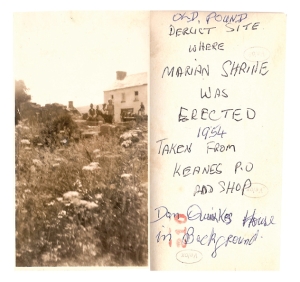 OLD. POUND
DERLICT SITE
WHERE
MARIAN SHRINE
WAS
ERECTED
1954
TAKEN FROM
KEANES P.O
AND SHOP
Dan Quirkes House
in Background.